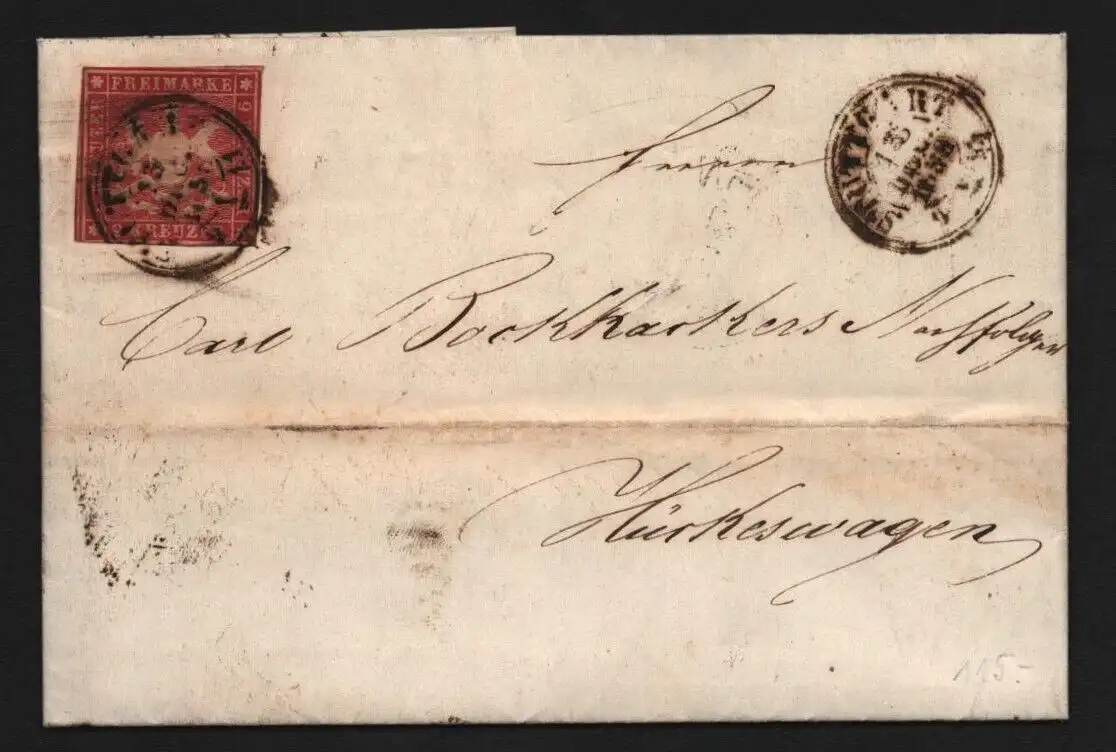 FREIMARKE
9 KREUZER
STUTTGART
Herrn
Carl Bockhackers Nachfolger
Hückeswagen
115.-